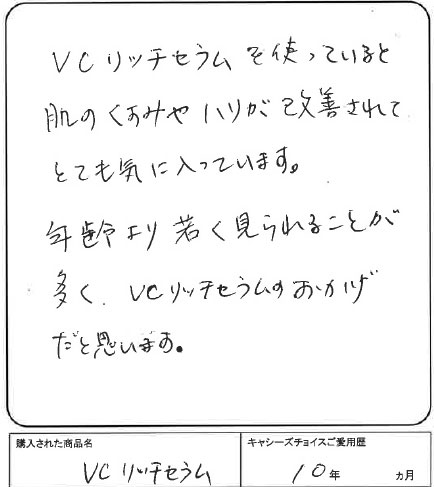 VCリッチセラムを使っていると
肌のくすみやハリが改善されて
とても気に入っています。
年齢より若く見られることが
多く、VCリッチセラムのおかげ
だと思います。
購入された商品名
キャシーズチョイスご愛用歴
VCリッチセラム
10年 ヵ月